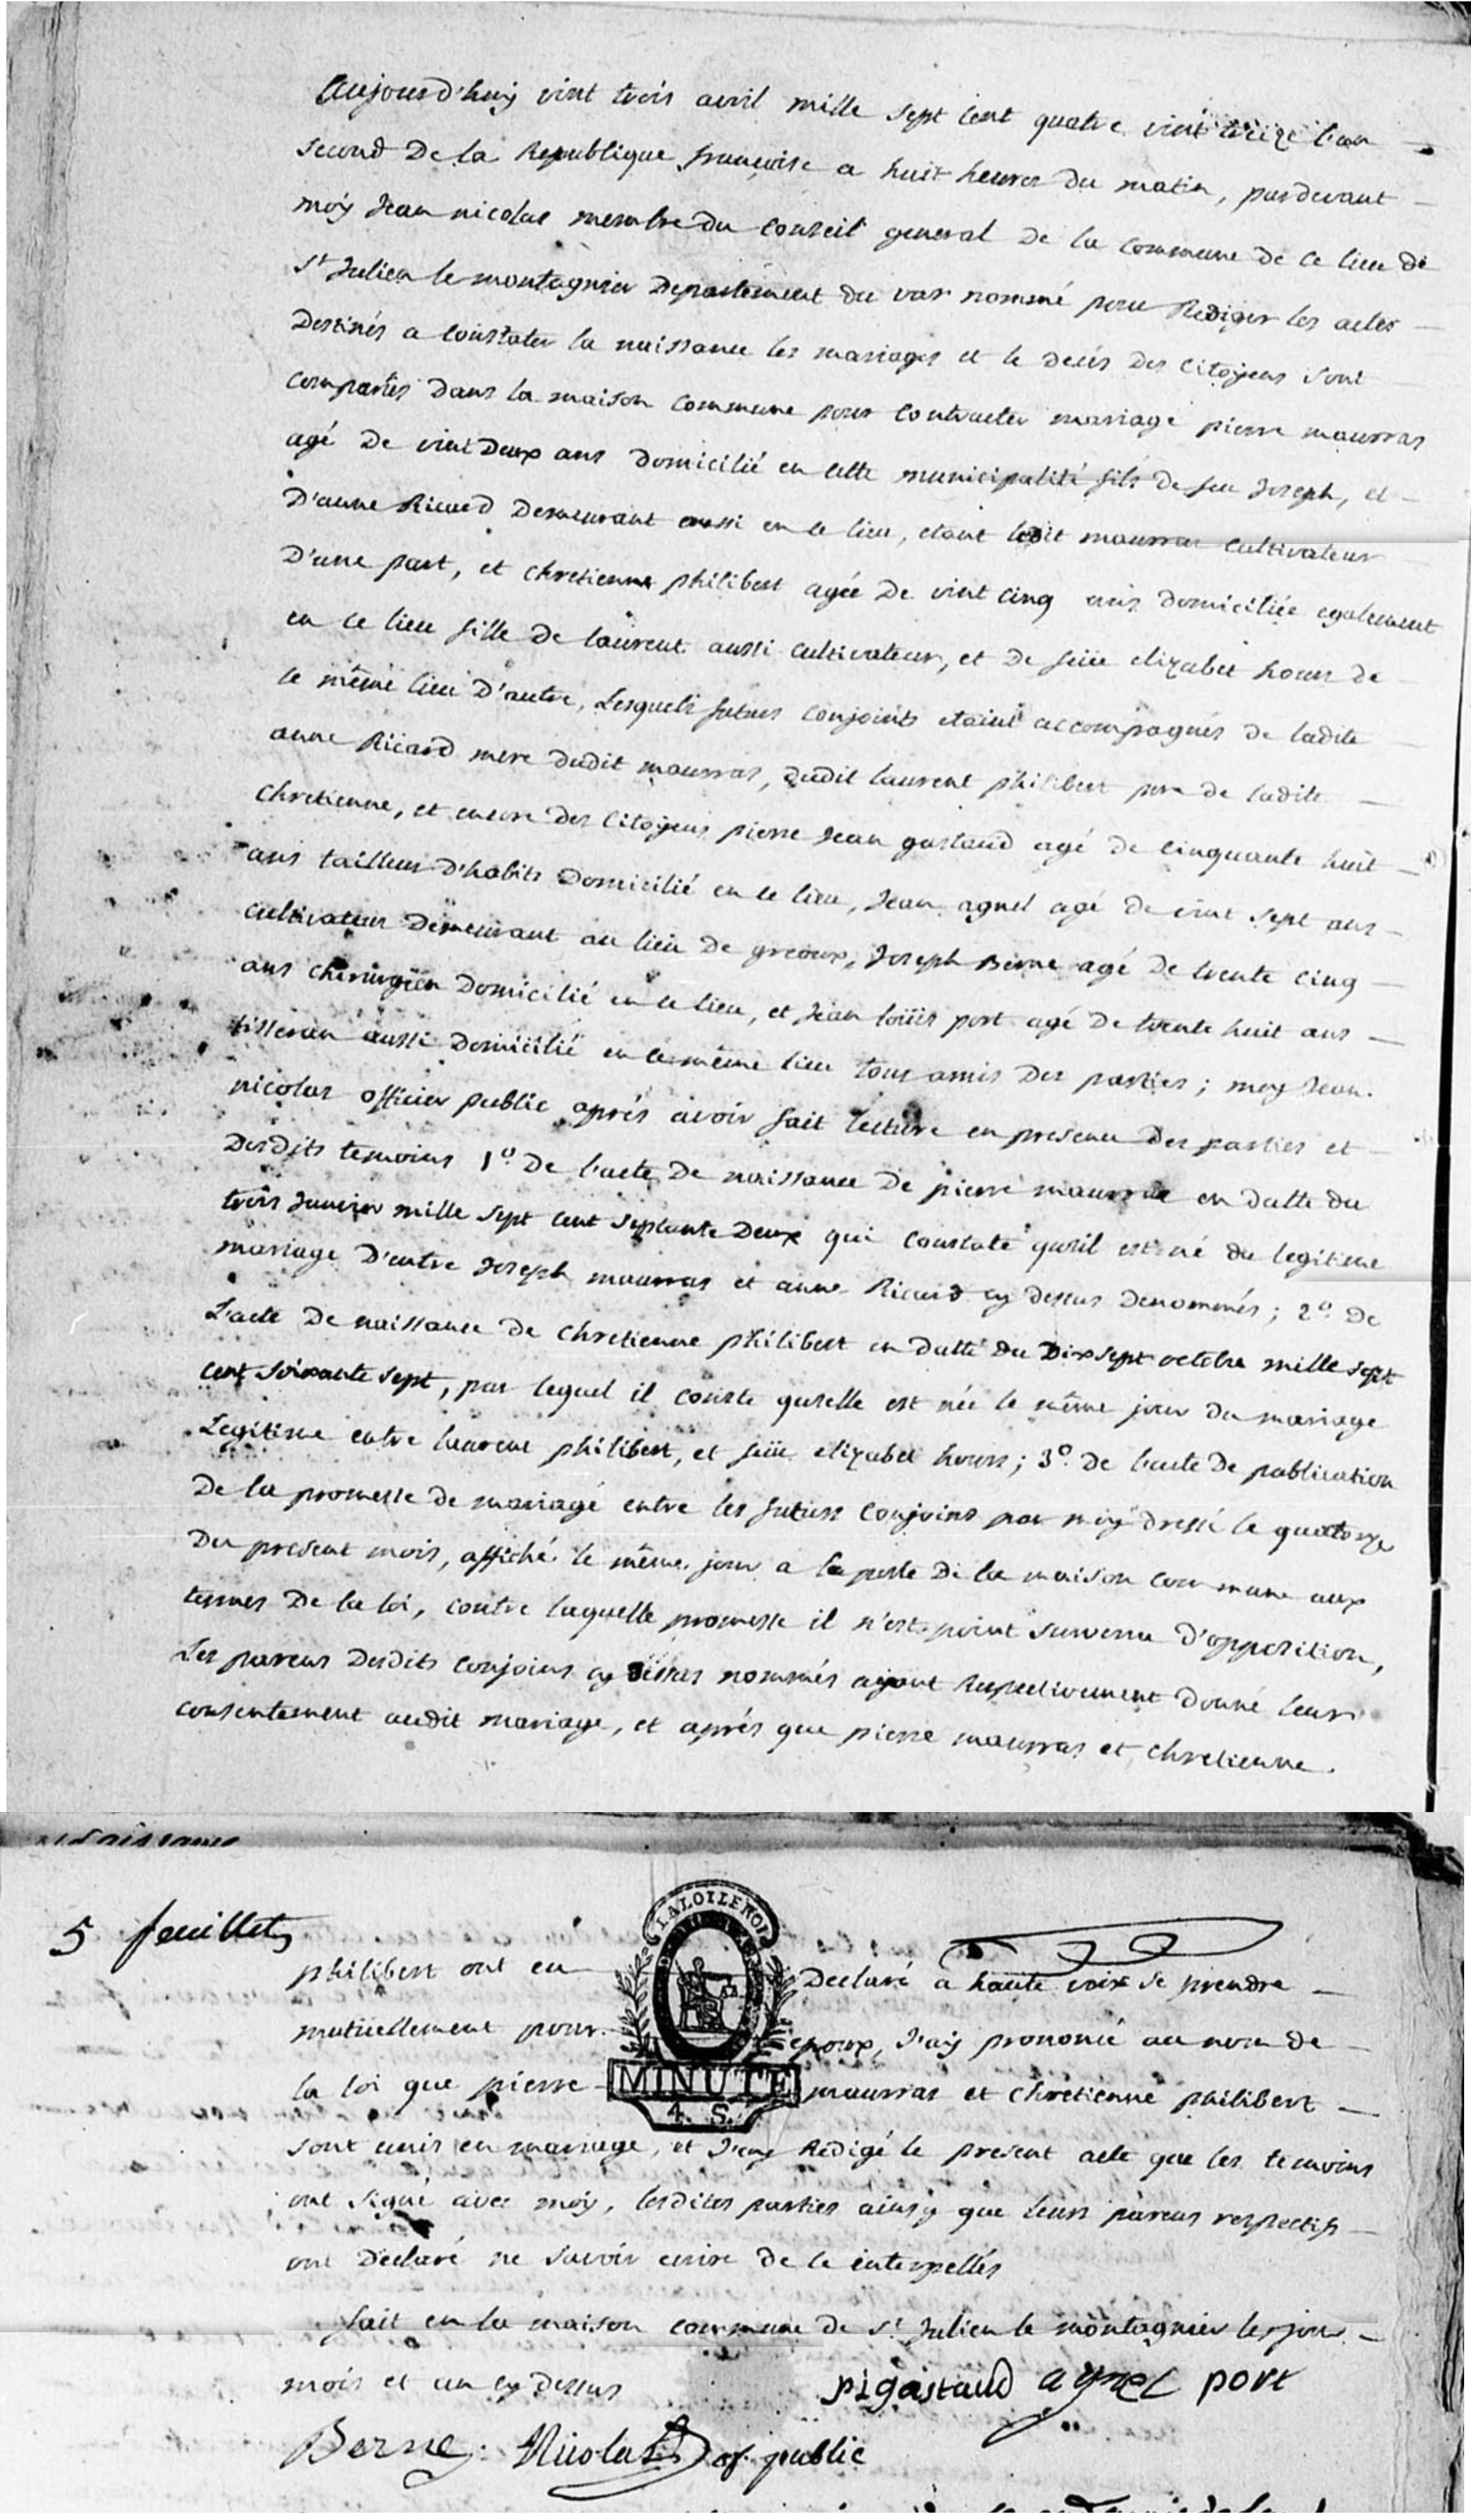 Aujourd'huy vint trois avril mille sept cent quatre vint treize l'an
second De la Republique françoise a huit heures du matin, pardevant
moy Jean nicolas membre du Conseil general De la Commune De ce lieu de
St Julien le montagnier Departement du var nommé pour Rediger les actes
Destinés a Constater la naissance les mariages et le decés Des Citoyens sont
comparûs Dans la maison Commune pour Contracter mariage pierre maurras
agé De vint Deux ans Domicilié en cette municipalité fils De feu Joseph, et
D'anne Ricard Demeurant aussi en ce lieu, etant ledit maurras cultivateur
D'une part, et chretienne philibert agée De vint cinq ans Domiciliée egalement
en ce lieu fille De laurent aussi cultivateur, et De feüe elizabet hours de
ce même lieu D'autre, Lesquels futurs conjoints etaint accompagnés De ladite
anne Ricard mere dudit maurras, dudit laurent philibert pere de ladite
Chretienne, et encore Des Citoyens pierre Jean gastaud agé De cinquante huit
ans tailleur D'habits Domicilié en ce lieu, Jean agnel agé De vint sept ans
cultivateur Demeurant au lieu De greoux, Joseph Berne agé De trente cinq
ans chirurgien Domicilié en ce lieu, et Jean loüis port agé De trente huit ans
tisseran aussi Domicilié en ce même lieu tous amis Des parties; moy Jean
nicolas officier public aprés avoir fait lecture en presence Des parties et
Desdits temoins 1º. De l'acte De naissance De pierre maurras en datte du
trois Janvier mille sept cent septante Deux qui Constate qu'il est né du legitime
mariage D'entre Joseph maurras et anne Ricard cy dessus Denommés; 2º. De
L'acte De naissance De chretienne philibert en datte du Dix sept octobre mille sept
cent soixante sept, par lequel il conste qu'elle est née le même jour du mariage
Legitime entre laurent philibert, et feüe elizabet hours; 3º. De l'acte De publication
De la promesse De mariage entre les futurs Conjoins par moy dressé le quatorze
Du present mois, affiché le même jour a la porte De la maison commune aux
termes De la loi, contre laquelle promesse il n'est point survenu D'opposition,
Les parens Desdits conjoins cy dessus nommés ayant Respectivement Donné leur
consentement audit mariage, et aprés que pierre maurras et chretienne
5 feuillet
philibert ont eu Declaré a haute voix se prendre
LA LOI LE ROI
mutuellement pour epoux, J'ay prononcé au nom de
la loi que pierre maurras et chretienne philibert
MINUTE
4. S.
sont unis en mariage, et J'ay Rédigé le present acte que les temoins
ont signé avec moy, lesdites parties ainsy que leurs parens respectifs
ont Declaré ne savoir ecrire de ce interpellés
fait en la maison commune de St Julien le montagnier les jour
mois et an cy dessus
pigastaud agnel port
Berne. Nicolas of. public